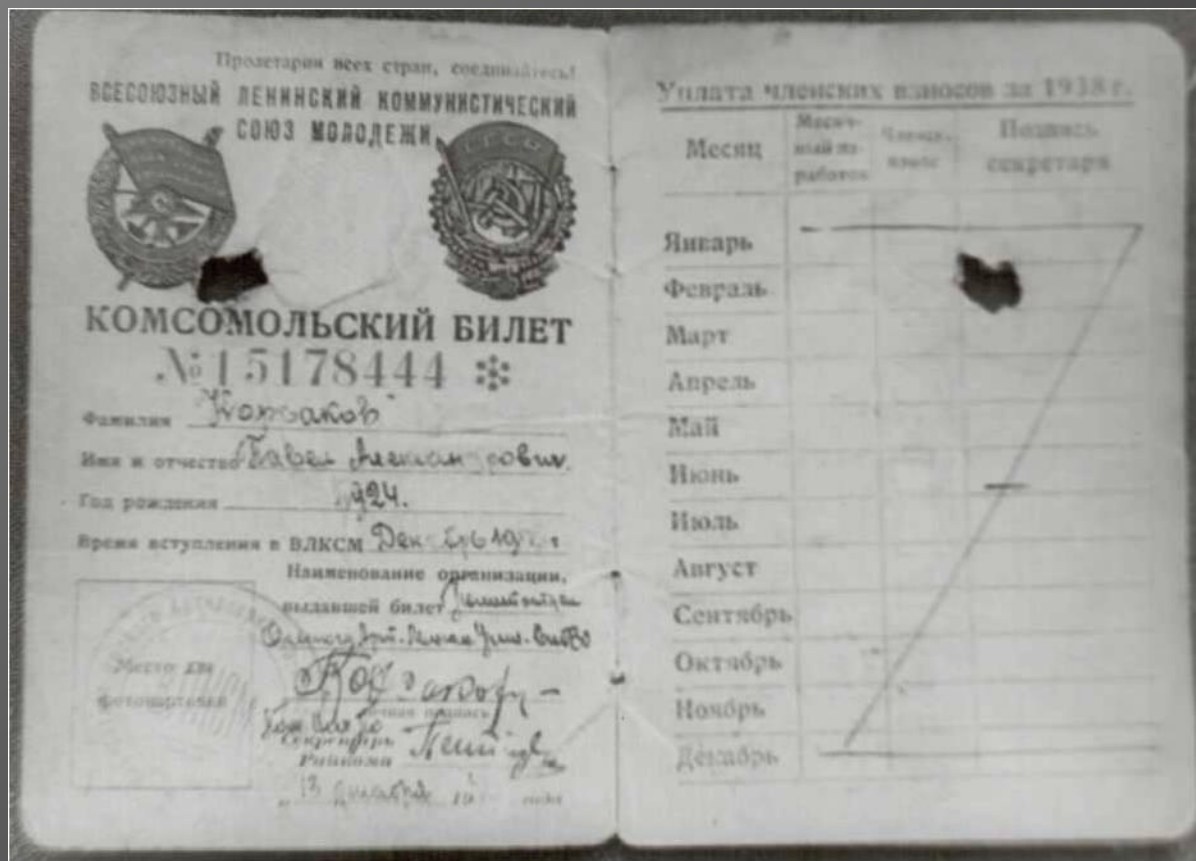 Пролетарии всех стран, соединяйтесь!
ВСЕСОЮЗНЫЙ ЛЕНИНСКИЙ КОММУНИСТИЧЕСКИЙ
СОЮЗ МОЛОДЕЖИ
СССР
КОМСОМОЛЬСКИЙ БИЛЕТ
№ 15178444
Фамилия Корсаков
Имя и отчество Павел Александрович
Год рождения 1924.
Время вступления в ВЛКСМ Декабрь 19
Наименование организации,
выдавшей билет
личная подпись
Секретарь
Райкома
13 декабря 19 года
Место для
фотокарточки
Уплата членских взносов за 1938 г.
Месяц Месяч-ный за-работок Членск. взнос Подпись секретаря
Январь
Февраль
Март
Апрель
Май
Июнь
Июль
Август
Сентябрь
Октябрь
Ноябрь
Декабрь